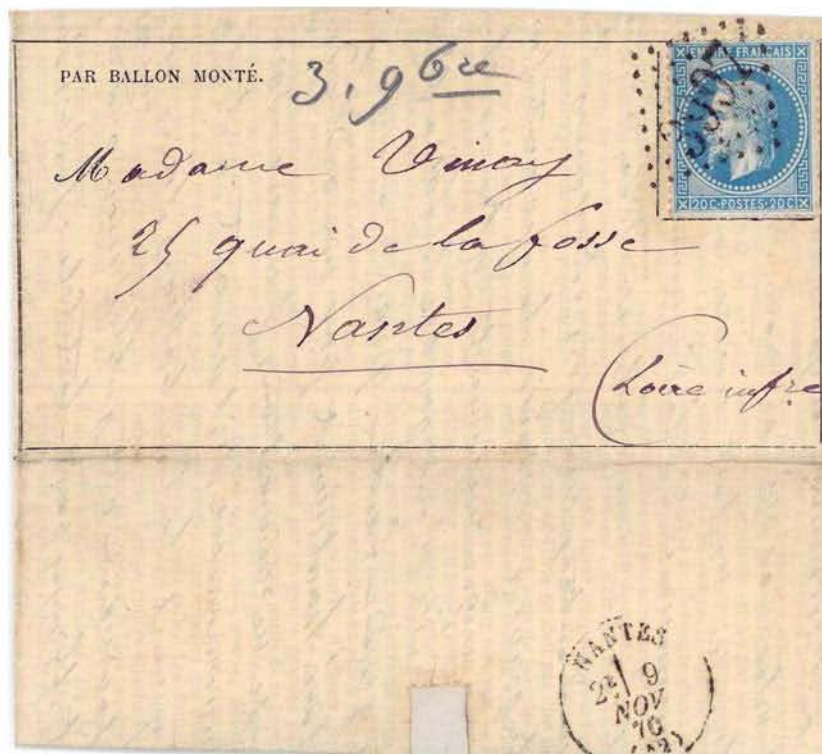 PAR BALLON MONTÉ.
3. 9bre
EMPIRE FRANÇAIS
20C·POSTES·20C
Madame
25 quai de la fosse
Nantes
(Loire infre
NANTES
2E 9
NOV
70
(42)